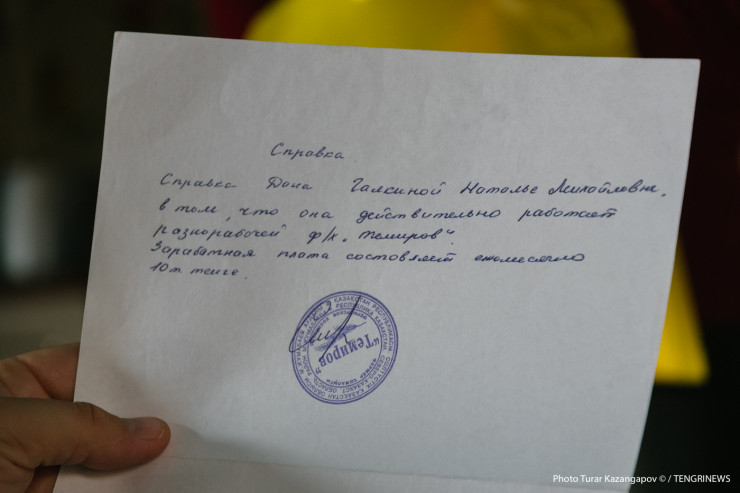 Справка
Справка Дана Галкиной Наталье Михайловне,
в том, что она действительно работает
разнорабочей ф/х „Темиров".
Заработная плата состовляет ежемесячно
10т тенге.
"Темиров"
Photo Turar Kazangapov © / TENGRINEWS